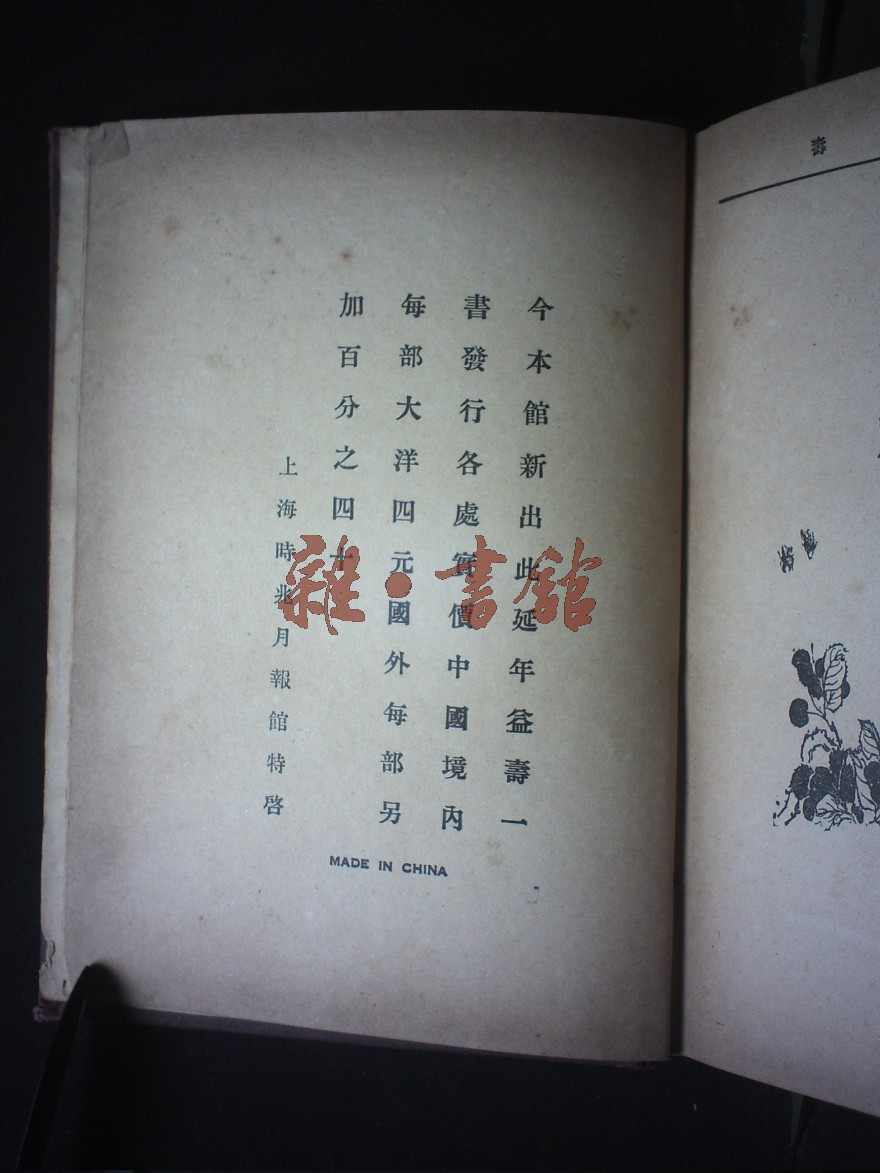 今本館新出此延年益壽一
書發行各處實價中國境內
每部大洋四元國外每部另
加百分之四十
上海時兆月報館特啓
MADE IN CHINA
雜·書館
壽